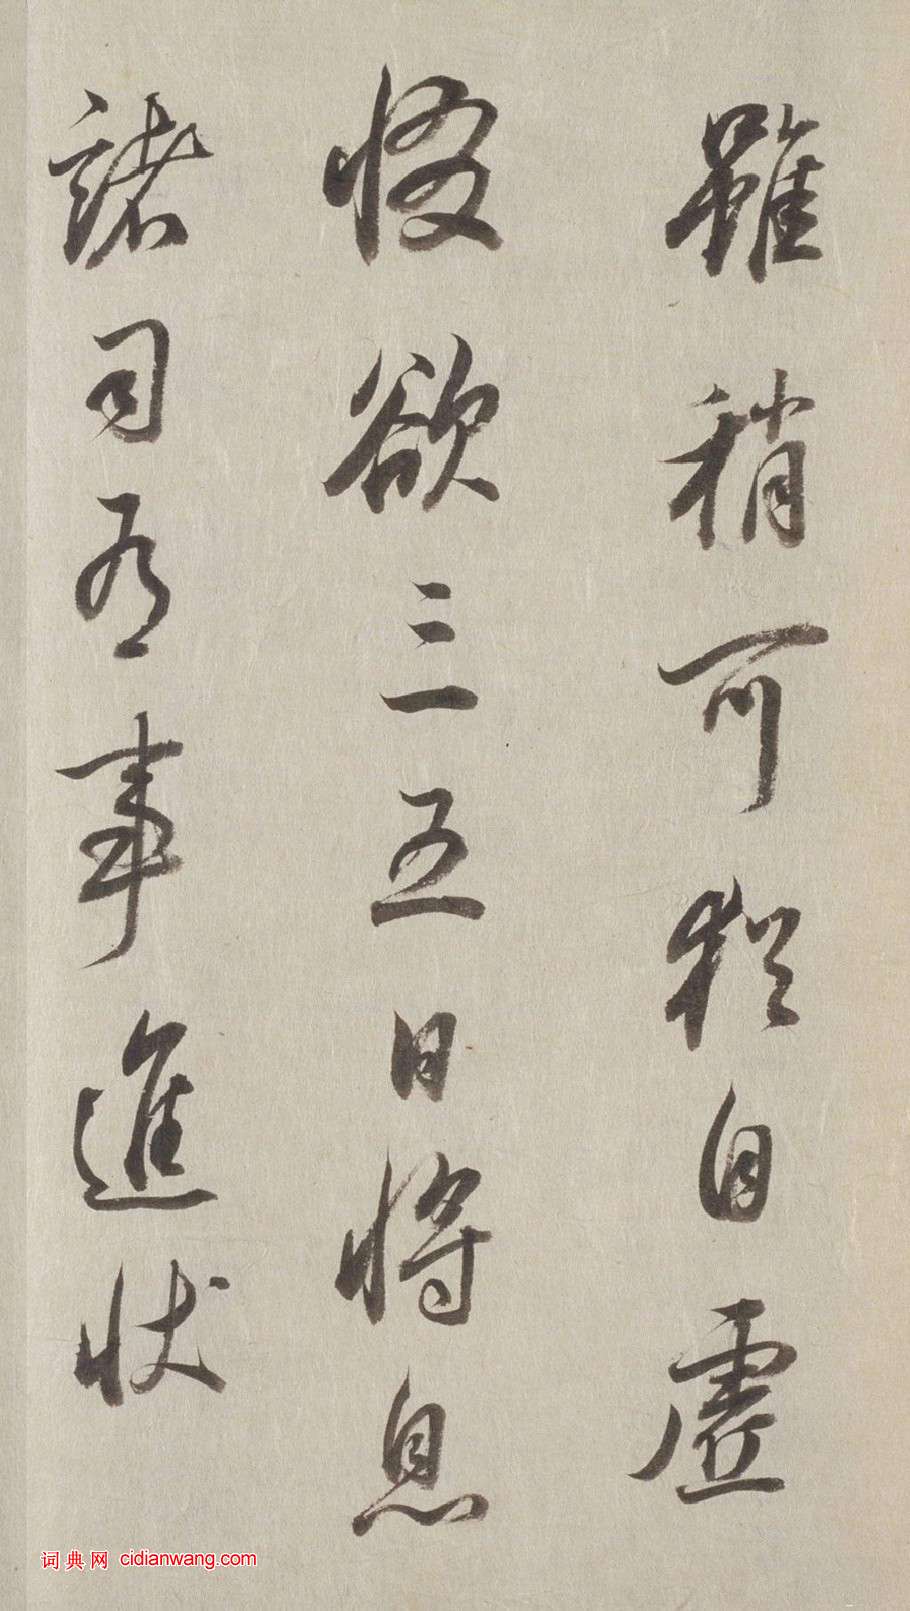 雖稍可猶自虛
惙欲三五日將息
諸司有事進狀
词典网 cidianwang.com